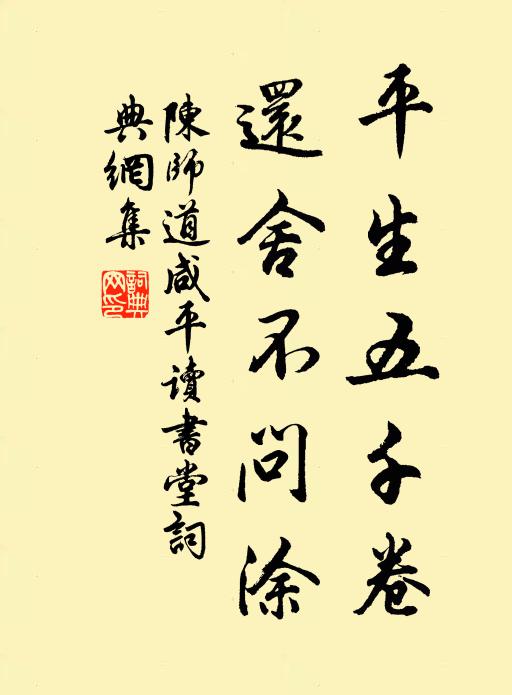 平生五千卷
還舍不問涂
陳師道咸平讀書堂詞
典網集
詞典網印